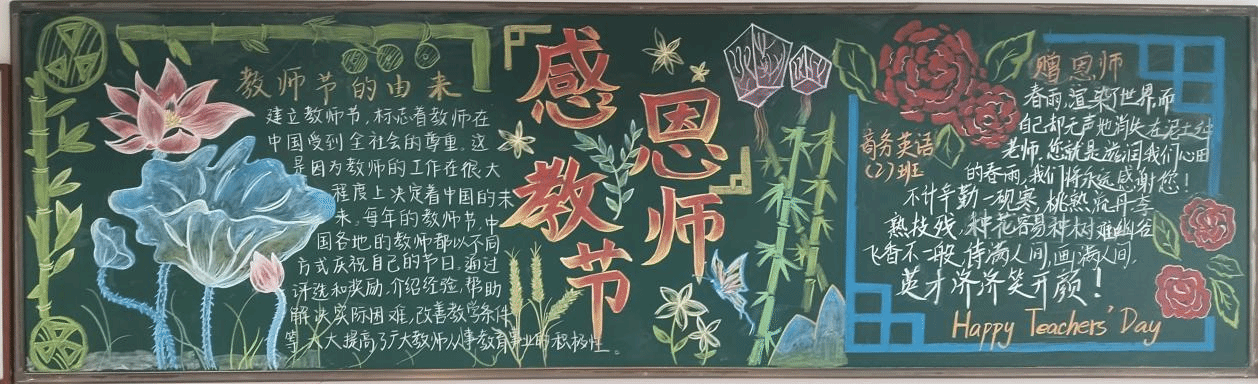 教师节的由来
建立教师节，标志着教师在
中国受到全社会的尊重。这
是因为教师的工作在很大
程度上决定着中国的未
来。每年的教师节，中
国各地的教师都以不同
方式庆祝自己的节日。通过
评选和奖励，介绍经验，帮助
解决实际困难，改善教学条件
等，大大提高了广大教师从事教育事业的积极性。
感恩
教师
节
商务英语
（2）班
赠恩师
春雨，渲染了世界，而
自己却无声地消失在泥土之
老师，您就是滋润我们心田
的春雨，我们将永远感谢您！
不计辛勤一砚寒，桃熟流丹，李
熟枝残，种花容易种树难。幽谷
飞香不一般，诗满人间，画满人间，
英才济济笑开颜！
Happy Teachers' Day